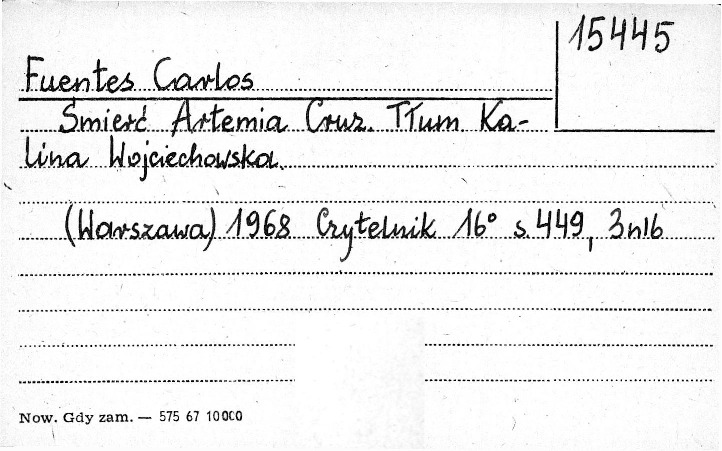 15445
Fuentes Carlos
Śmierć Artemia Cruz. Tłum Ka-
lina Wojciechowska.
(Warszawa) 1968 Czytelnik 16° s. 449, 3nlb
Now. Gdy zam. — 575 67 10000